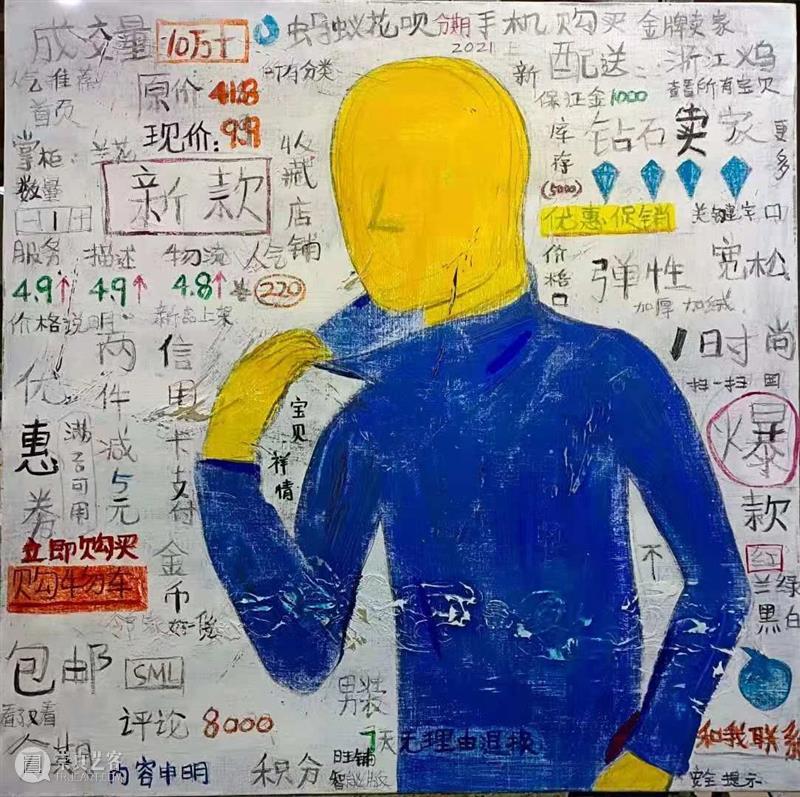 成交量 10万+
蚂蚁花呗 分期 手机 购买 金牌卖家
2021
所有分类
新
配送:浙江义乌
保证金1000
查看所有宝贝
首页
原价 418
现价:99
新款
收藏店铺
掌柜:兰花
数量
1
库存
(5000)
钻石卖家
更多
优惠促销
关键字
价格
弹性
宽松
加厚 加绒
服务 描述 物流 人气
4.9↑ 4.9↑ 4.8↑ 220
价格说明
新品上架
时尚
扫一扫
爆款
红
兰绿
黑白
优惠券
满 可用
两件减5元
信用卡支付
金币
宝贝
详情
立即购买
购物车
不
包邮
SML
男装
看了又看
评论 8000
7天无理由退换
和我联系
分期
内容申明
积分
旺铺
智能版
安全提示